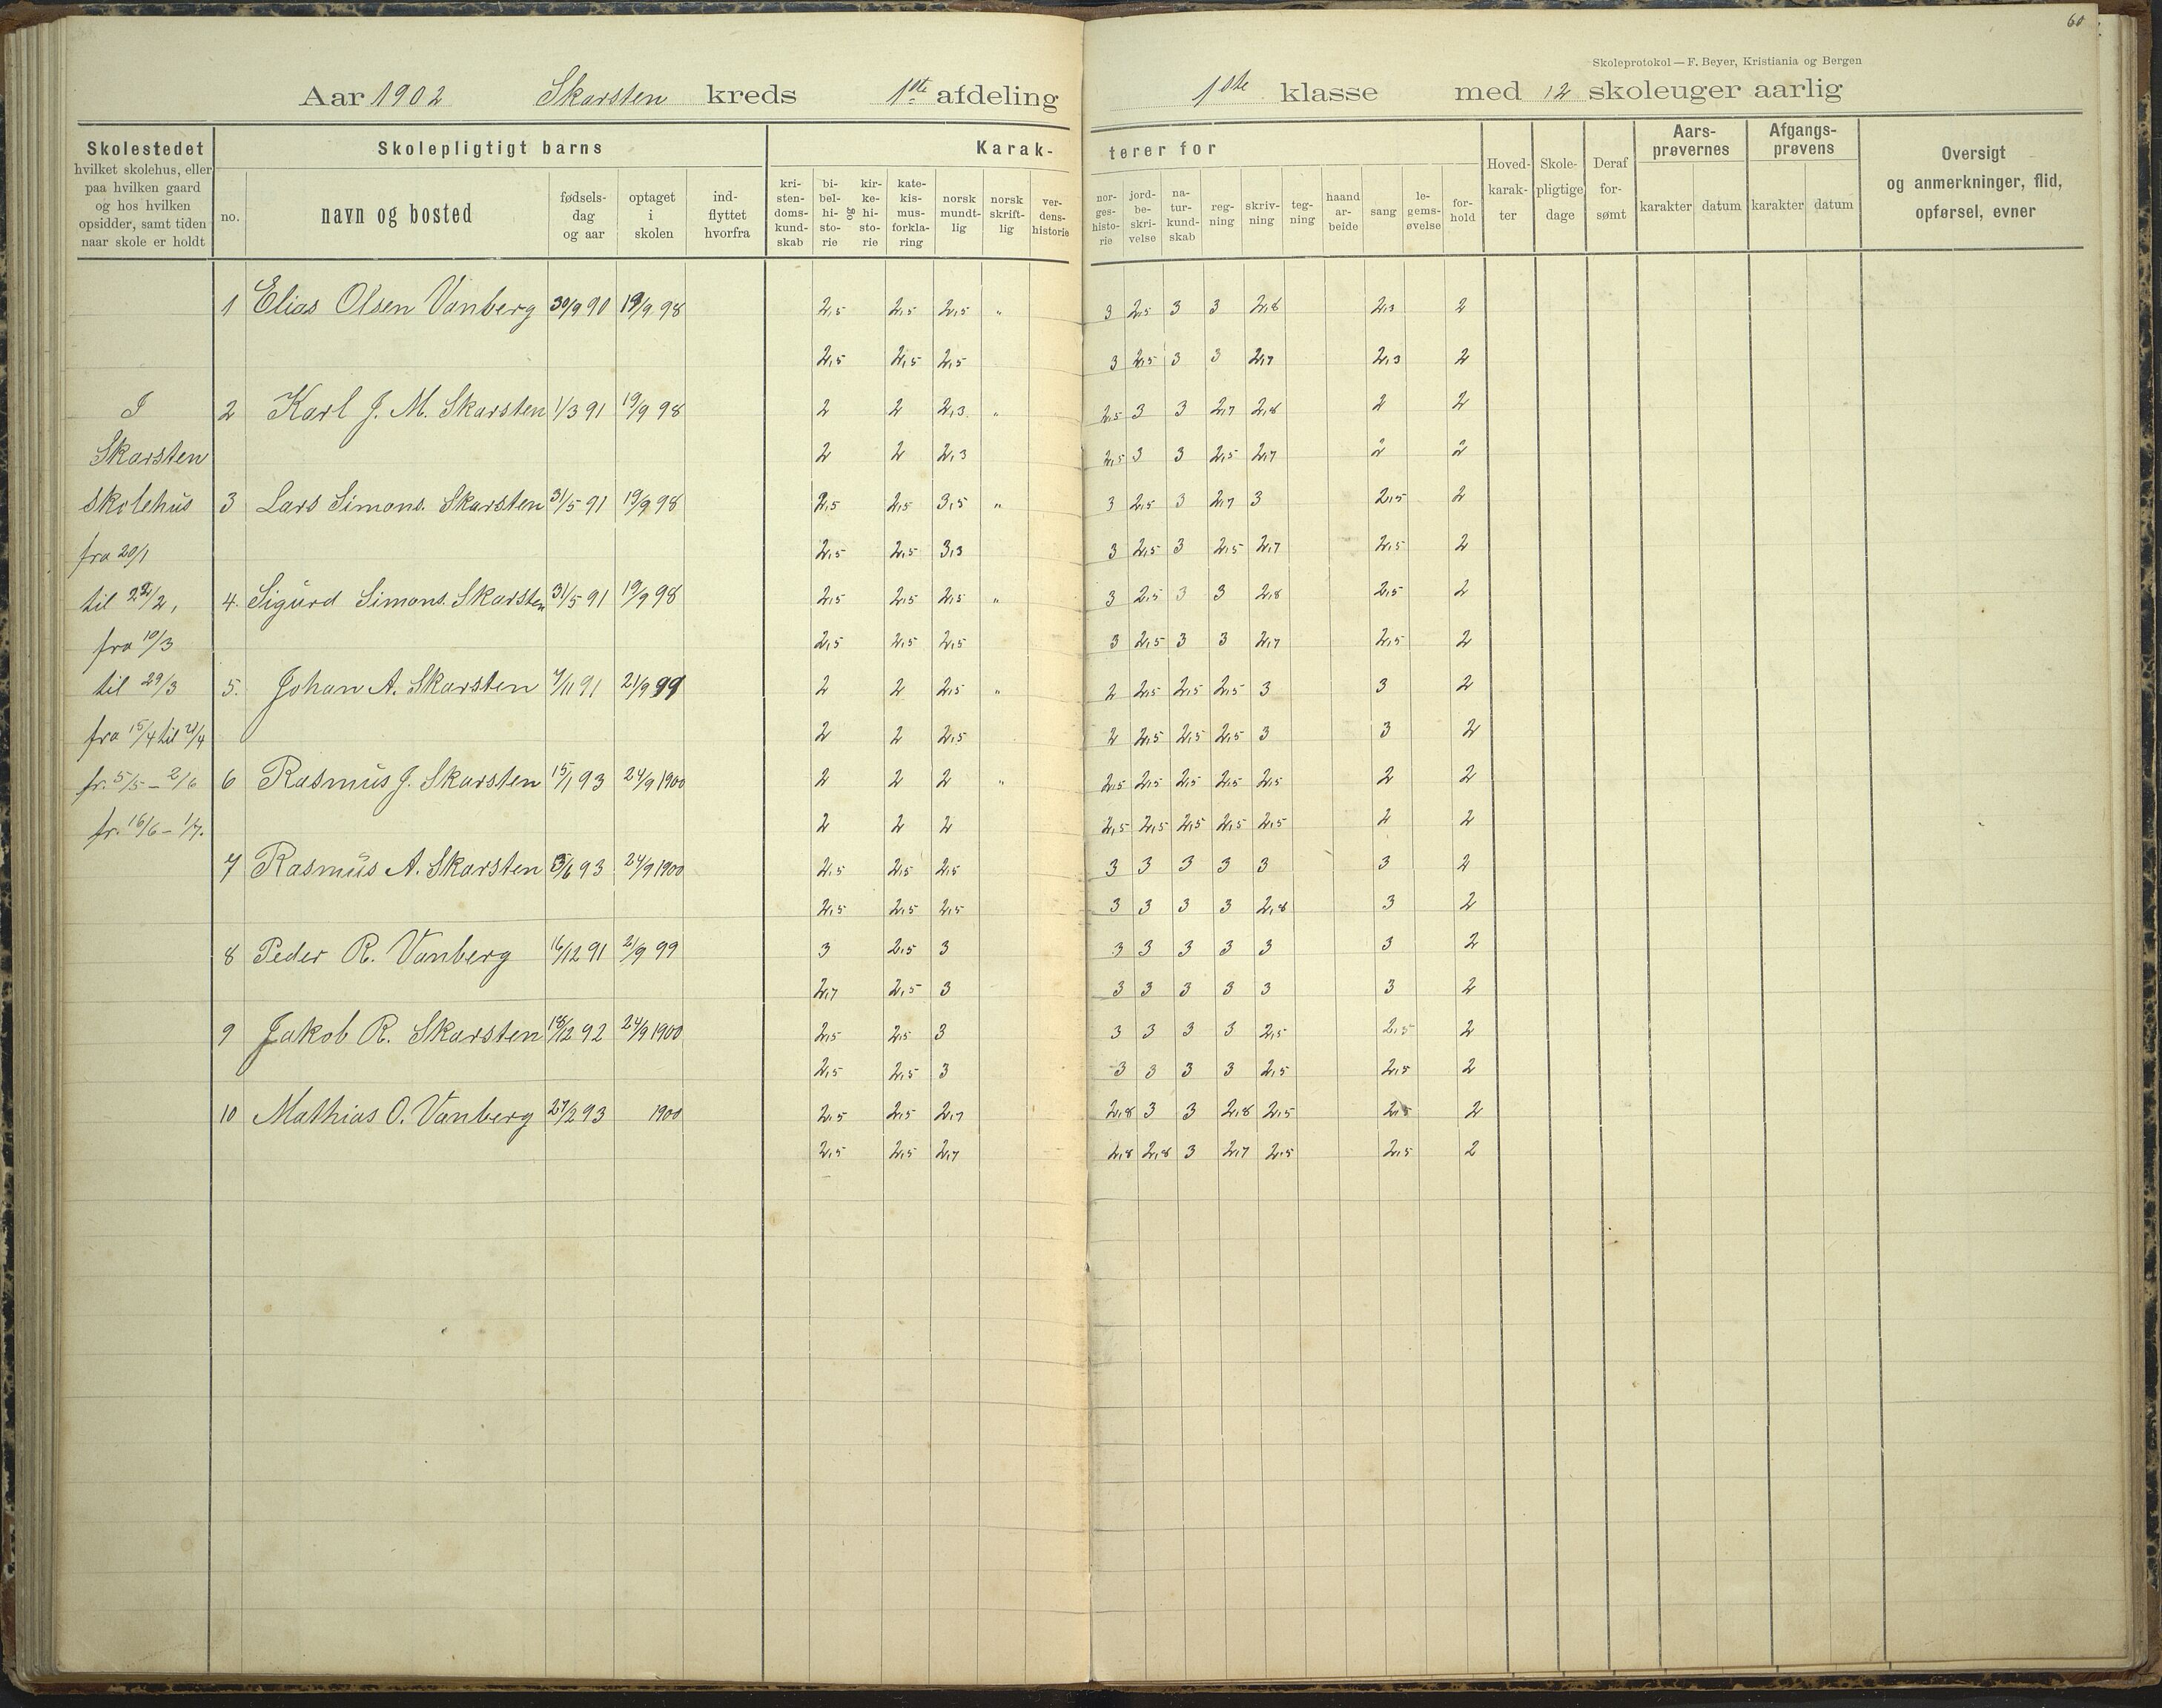 60
Skoleprotokol — F. Beyer, Kristiania og Bergen
Aar 1902 Skarsten kreds 1ste afdeling 1ste klasse med 12 skoleuger aarlig
Skolestedet
hvilket skolehus, eller
paa hvilken gaard
og hos hvilken
opsidder, samt tiden
naar skole er holdt
Skolepligtigt barns
no.
navn og bosted
fødsels-
dag
og aar
optaget
i
skolen
ind-
flyttet
hvorfra
Karak-
terer for
kri-
sten-
doms-
kund-
skab
bi-
bel-
hi-
sto-
rie
og
kir-
ke-
hi-
sto-
rie
kate-
kis-
mus-
forkla-
ring
norsk
mundt-
lig
norsk
skrift-
lig
ver-
dens-
historie
nor-
ges-
histo-
rie
jord-
be-
skri-
velse
na-
tur-
kund-
skab
reg-
ning
skriv-
ning
teg-
ning
haand
ar-
beide
sang
le-
gems-
øvelse
for-
hold
Hoved-
karak-
ter
Skole-
pligtige
dage
Deraf
for-
sømt
Aars-
prøvernes
karakter datum
Afgangs-
prøvens
karakter datum
Oversigt
og anmerkninger, flid,
opførsel, evner
1 Elias Olsen Vanberg 30/9 90 19/9 98 2,5 2,5 2,5 " 3 2,5 3 3 2,8 2,3 2
2,5 2,5 2,5 3 2,5 3 3 2,7 2,3 2
I 2 Karl J. M. Skarsten 1/3 91 19/9 98 2 2 2,3 " 2,5 3 3 2,7 2,8 2 2
Skarsten 2 2 2,3 2,5 3 3 2,5 2,7 2 2
skolehus 3 Lars Simons. Skarsten 31/5 91 19/9 98 2,5 2,5 3,5 " 3 2,5 3 2,7 3 2,5 2
fra 20/1 2,5 2,5 3,3 3 2,5 3 2,5 2,7 2,5 2
til 22/2, 4. Sigurd Simons. Skarsten 31/5 91 19/9 98 2,5 2,5 2,5 " 3 2,5 3 3 2,8 2,5 2
fra 10/3 2,5 2,5 2,5 3 2,5 3 3 2,7 2,5 2
til 29/3 5. Johan A. Skarsten 7/11 91 21/9 99 2 2 2,5 " 2 2,5 2,5 2,5 3 3 2
fra 15/4 til 21/4 2 2 2,5 2 2,5 2,5 2,5 3 3 2
fr. 5/5 - 2/6 6 Rasmus J. Skarsten 15/1 93 24/9 1900 2 2 2 " 2,5 2,5 2,5 2,5 2,5 2 2
fr. 16/6 - 1/7. 2 2 2 2,5 2,5 2,5 2,5 2,5 2 2
7 Rasmus A. Skarsten /6 93 24/9 1900 2,5 2,5 2,5 3 3 3 3 3 3 2
2,5 2,5 2,5 3 3 3 3 2,8 3 2
8 Peder R. Vanberg 16/12 91 21/9 99 3 2,5 3 3 3 3 3 3 3 2
2,7 2,5 3 3 3 3 3 3 3 2
9 Jakob R. Skarsten 18/12 92 24/9 1900 2,5 2,5 3 3 3 3 3 2,5 2,5 2
2,5 2,5 3 3 3 3 3 2,5 2,5 2
10 Mathias O. Vanberg 27/2 93 1900 2,5 2,5 2,7 2,8 3 3 2,8 2,5 2,5 2
2,5 2,5 2,7 2,8 2,8 3 2,7 2,5 2,5 2